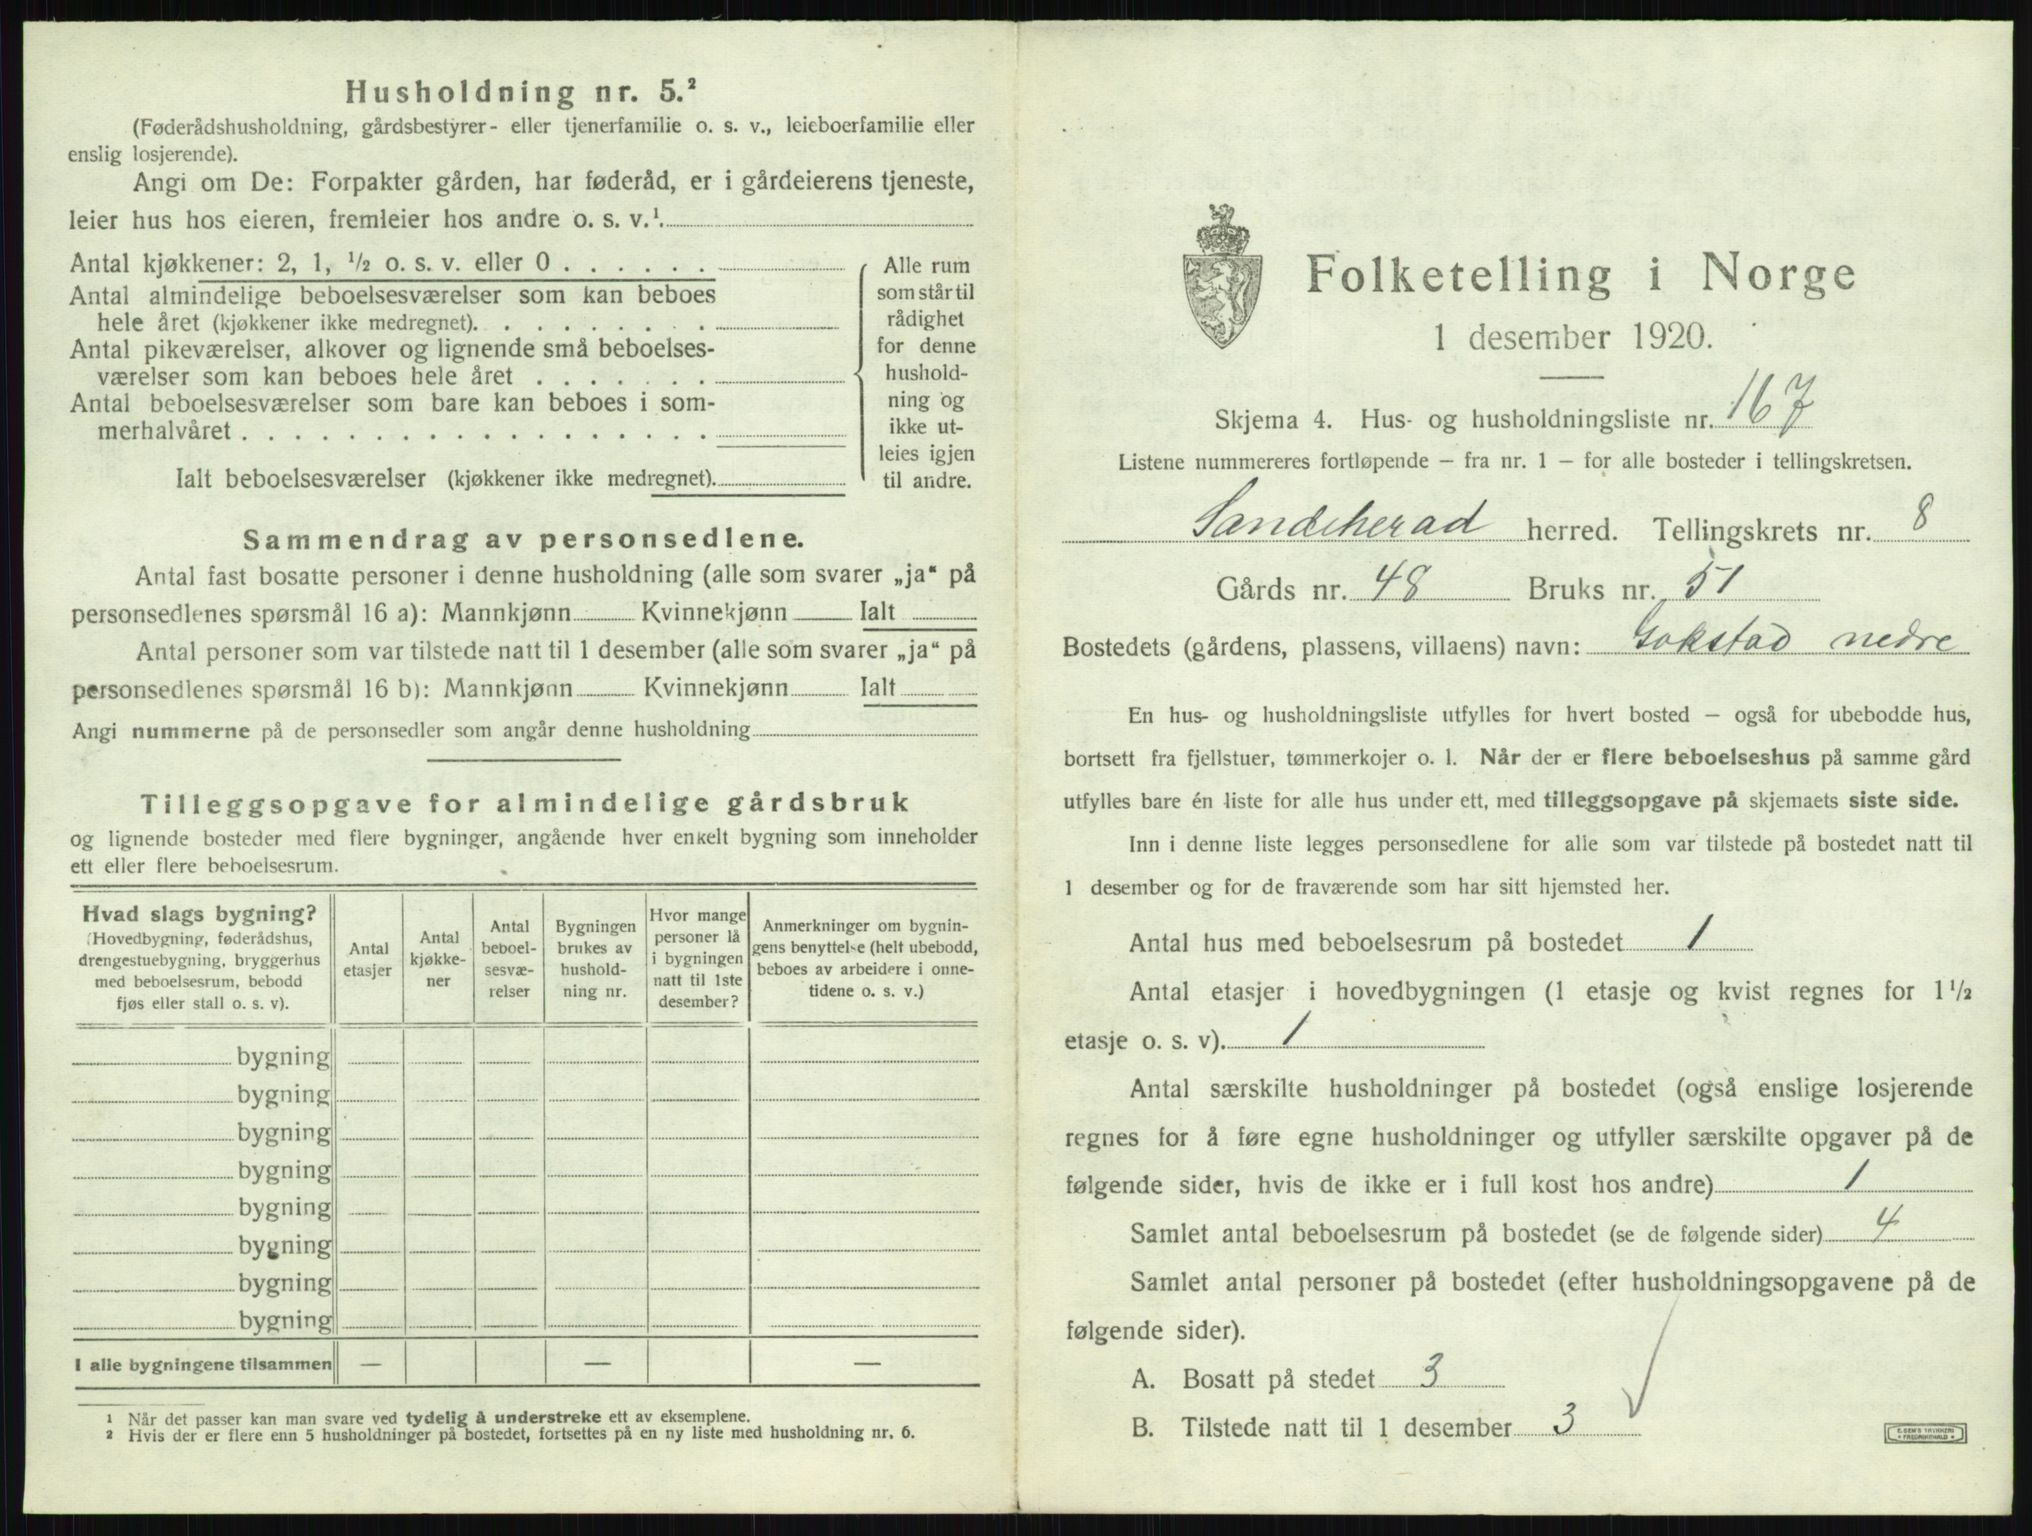 Husholdning nr. 5.²
(Føderådshusholdning, gårdsbestyrer- eller tjenerfamilie o. s. v., leieboerfamilie eller
enslig losjerende).
Angi om De: Forpakter gården, har føderåd, er i gårdeierens tjeneste,
leier hus hos eieren, fremleier hos andre o. s. v.¹.
Antal kjøkkener: 2, 1, ½ o. s. v. eller 0 . . . . . .
Antal almindelige beboelsesværelser som kan beboes
hele året (kjøkkener ikke medregnet). . . . . . . . .
Antal pikeværelser, alkover og lignende små beboelses-
værelser som kan beboes hele året . . . . . . .
Antal beboelsesværelser som bare kan beboes i som-
merhalvåret . . . . . . . . . . . . . . . . . .
Ialt beboelsesværelser (kjøkkener ikke medregnet).
Alle rum
som står til
rådighet
for denne
hushold-
ning og
ikke ut-
leies igjen
til andre.
Sammendrag av personsedlene.
Antal fast bosatte personer i denne husholdning (alle som svarer „ja“ på
personsedlenes spørsmål 16 a): Mannkjønn Kvinnekjønn Ialt
Antal personer som var tilstede natt til 1 desember (alle som svarer „ja“ på
personsedlenes spørsmål 16 b): Mannkjønn Kvinnekjønn Ialt
Angi nummerne på de personsedler som angår denne husholdning
Tilleggsopgave for almindelige gårdsbruk
og lignende bosteder med flere bygninger, angående hver enkelt bygning som inneholder
ett eller flere beboelsesrum.
Hvad slags bygning?
(Hovedbygning, føderådshus,
drengestuebygning, bryggerhus
med beboelsesrum, bebodd
fjøs eller stall o. s. v).
Antal
etasjer
Antal
kjøkke-
ner
Antal
beboel-
sesvæ-
relser
Bygningen
brukes av
hushold-
ning nr.
Hvor mange
personer lå
i bygningen
natt til 1ste
desember?
Anmerkninger om bygnin-
gens benyttelse (helt ubebodd,
beboes av arbeidere i onne-
tidene o. s. v.)
bygning
bygning
bygning
bygning
bygning
bygning
bygning
bygning
I alle bygningene tilsammen — — —
1 Når det passer kan man svare ved tydelig å understreke ett av eksemplene.
2 Hvis der er flere enn 5 husholdninger på bostedet, fortsettes på en ny liste med husholdning nr. 6.
Folketelling i Norge
1 desember 1920.
Skjema 4. Hus- og husholdningsliste nr. 167
Listene nummereres fortløpende — fra nr. 1 — for alle bosteder i tellingskretsen.
Sandeherad herred. Tellingskrets nr. 8
Gårds nr. 48 Bruks nr. 51
Bostedets (gårdens, plassens, villaens) navn: Gokstad nedre
En hus- og husholdningsliste utfylles for hvert bosted — også for ubebodde hus,
bortsett fra fjellstuer, tømmerkojer o. l. Når der er flere beboelseshus på samme gård
utfylles bare én liste for alle hus under ett, med tilleggsopgave på skjemaets siste side.
Inn i denne liste legges personsedlene for alle som var tilstede på bostedet natt til
1 desember og for de fraværende som har sitt hjemsted her.
Antal hus med beboelsesrum på bostedet 1
Antal etasjer i hovedbygningen (1 etasje og kvist regnes for 1½
etasje o. s. v). 1
Antal særskilte husholdninger på bostedet (også enslige losjerende
regnes for å føre egne husholdninger og utfyller særskilte opgaver på de
følgende sider, hvis de ikke er i full kost hos andre) 1
Samlet antal beboelsesrum på bostedet (se de følgende sider) 4
Samlet antal personer på bostedet (efter husholdningsopgavene på de
følgende sider).
A. Bosatt på stedet 3
B. Tilstede natt til 1 desember 3